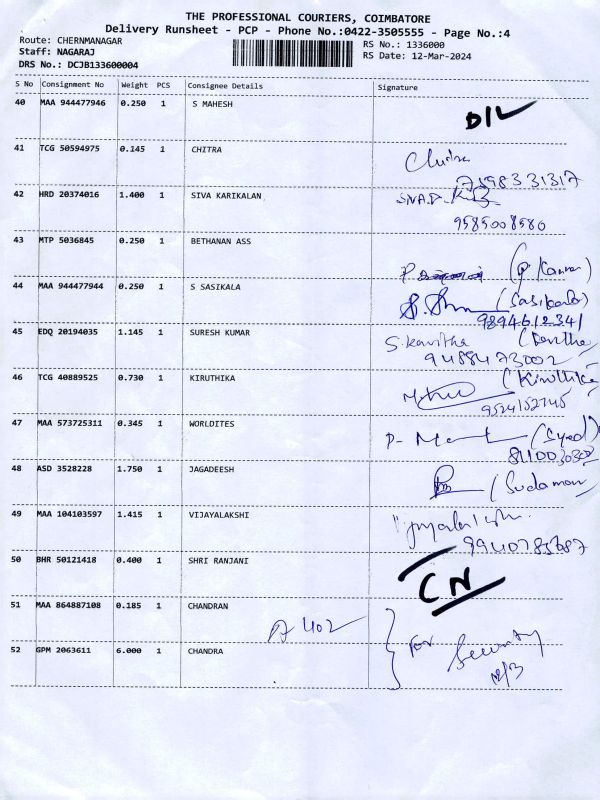 THE PROFESSIONAL COURIERS, COIMBATORE
Delivery Runsheet - PCP - Phone No.:0422-3505555 - Page No.:4
Route: CHERNMANAGAR RS No.: 1336000
Staff: NAGARAJ RS Date: 12-Mar-2024
DRS No.: DCJB133600004
S No Consignment No Weight PCS Consignee Details Signature
40 MAA 944477946 0.250 1 S MAHESH D/L
41 TCG 50594975 0.145 1 CHITRA Chitra
7598331317
42 HRD 20374016 1.400 1 SIVA KARIKALAN
9585008580
43 MTP 5036845 0.250 1 BETHANAN ASS
44 MAA 944477944 0.250 1 S SASIKALA (Sasikala)
9894612341
45 EDQ 20194035 1.145 1 SURESH KUMAR S. Kavitha
9488473002
46 TCG 40889525 0.730 1 KIRUTHIKA (Kiruthika)
9524152745
47 MAA 573725311 0.345 1 WORLDITES (Syed)
48 ASD 3528228 1.750 1 JAGADEESH
49 MAA 104103597 1.415 1 VIJAYALAKSHI
9940785687
50 BHR 50121418 0.400 1 SHRI RANJANI CN
51 MAA 864887108 0.185 1 CHANDRAN
A 402 For Security
52 GPM 2063611 6.000 1 CHANDRA
12/3